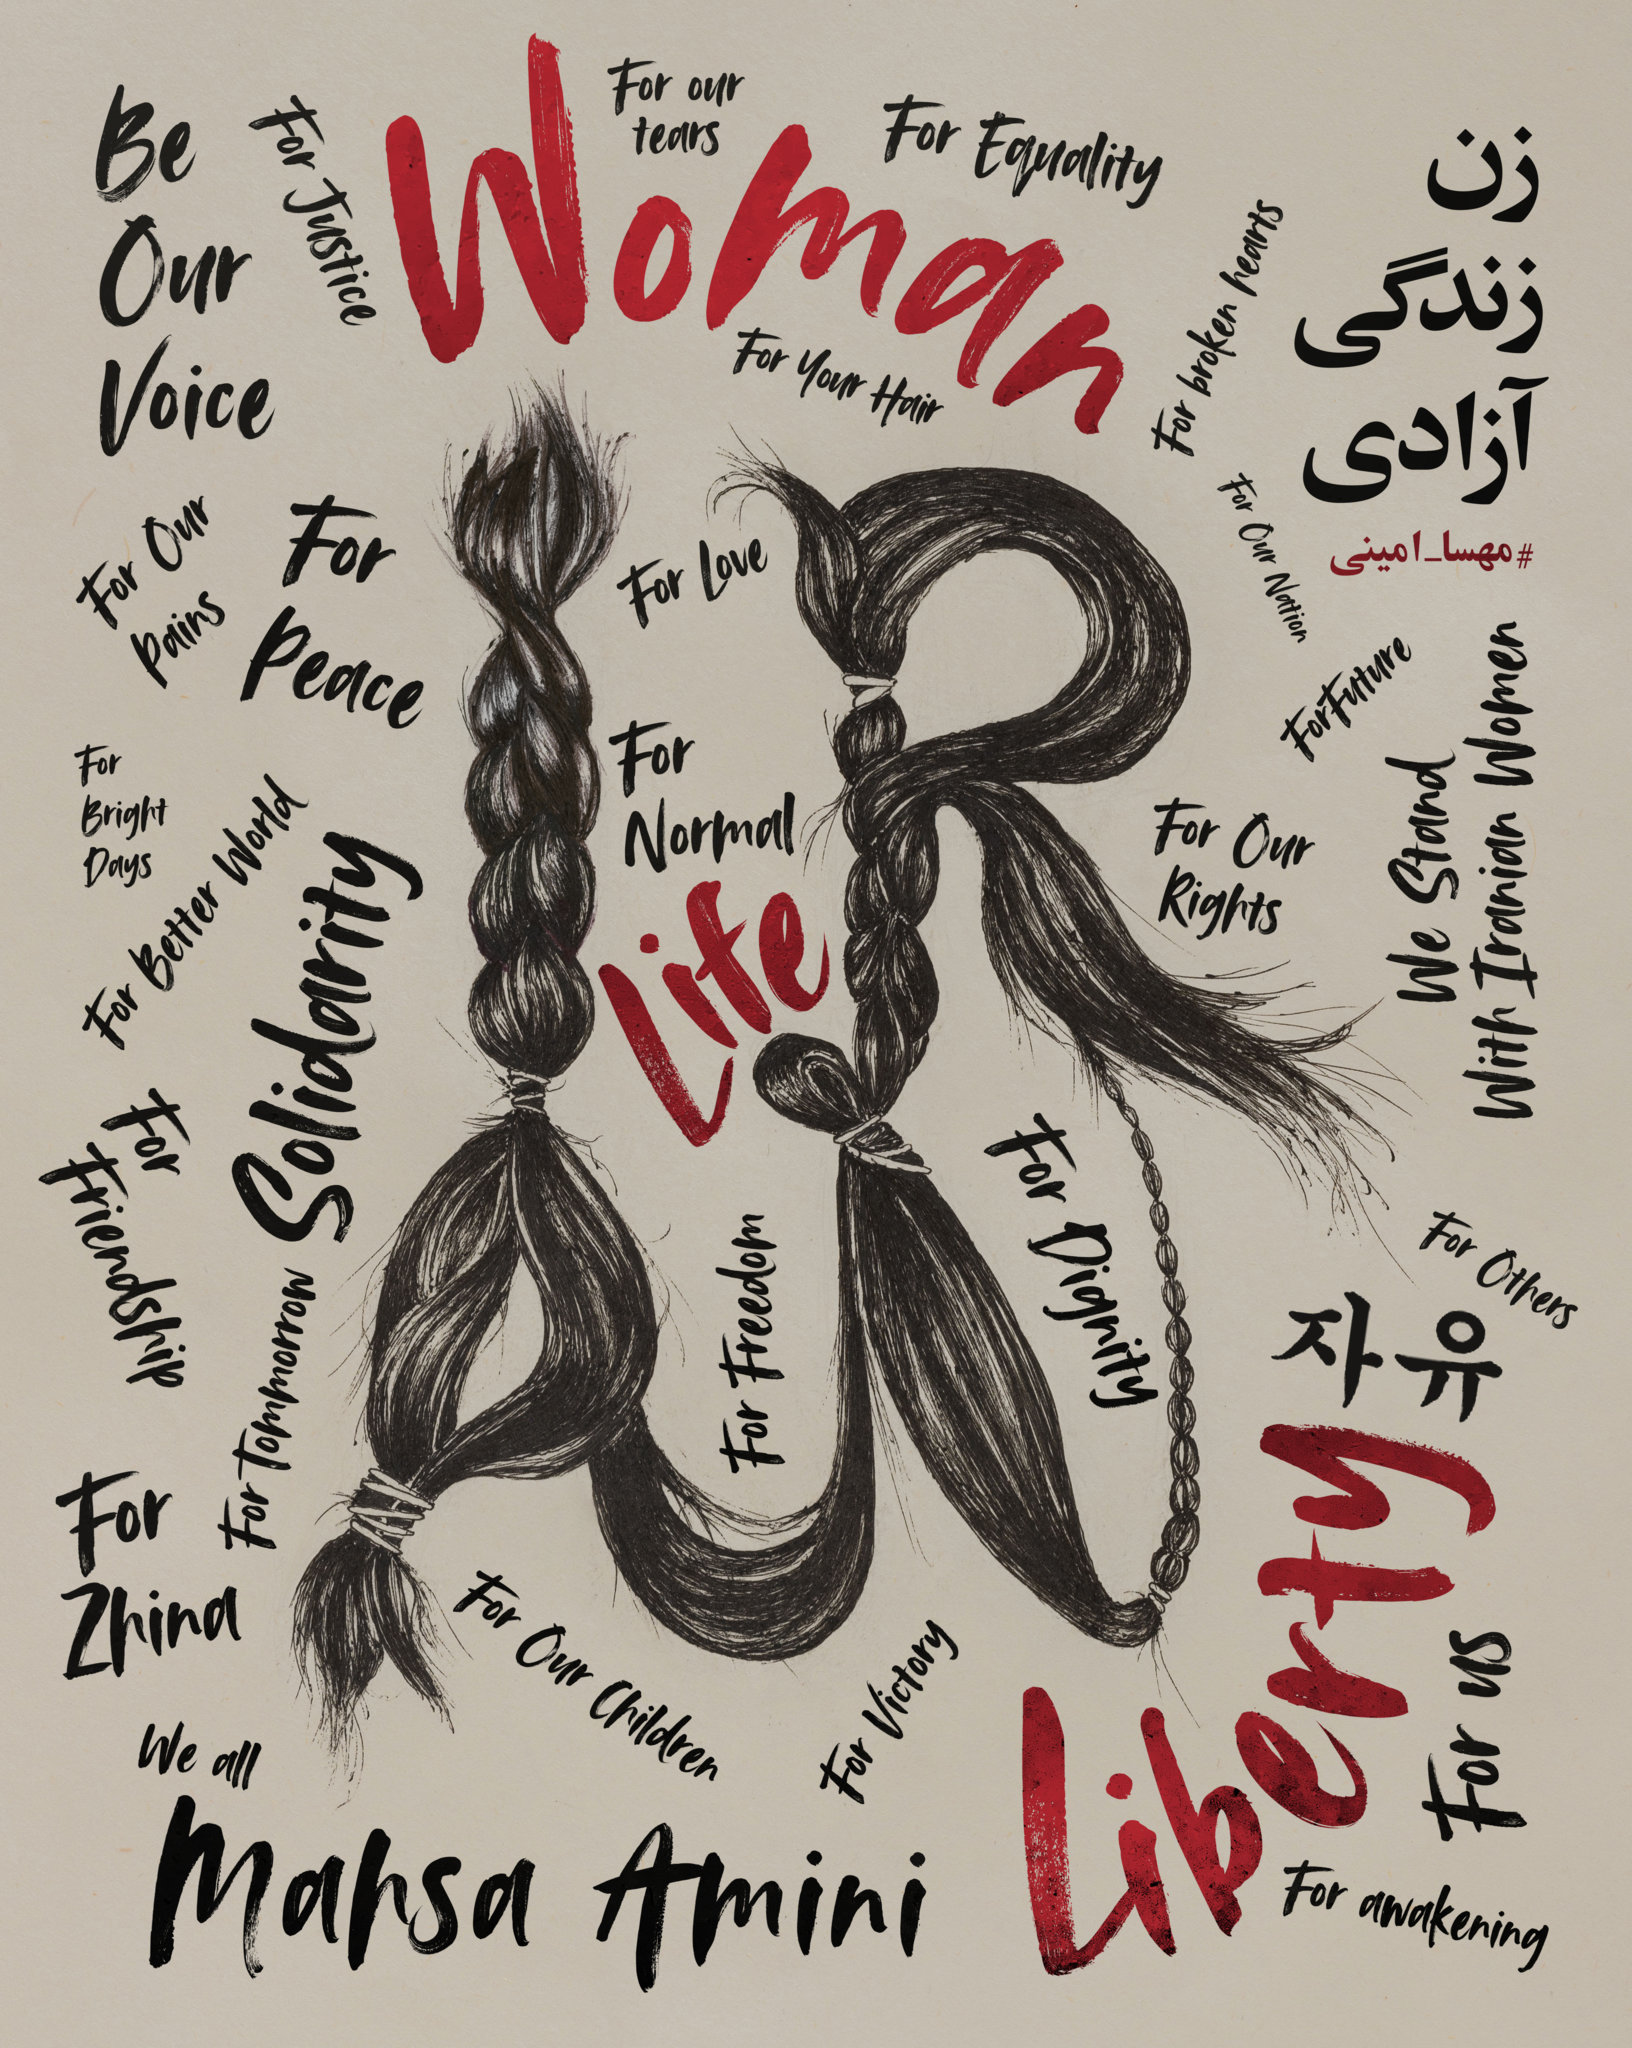 Be
Our
Voice
For Justice
Woman
For our
tears
For Equality
For Your Hair
For broken hearts
زن
زندگی
آزادی
#مهسا_امینی
For Our
pains
For
Peace
For Love
For Our Nation
For Future
We Stand
With Iranian Women
For
Bright
Days
For Better World
Solidarity
For
Normal
Life
For Our
Rights
For
Friendship
For Tommorrow
For Freedom
For Dignity
For Others
자유
Liberty
For
Zhina
For Our Children
For Victory
For us
We all
Mahsa Amini
For awakening